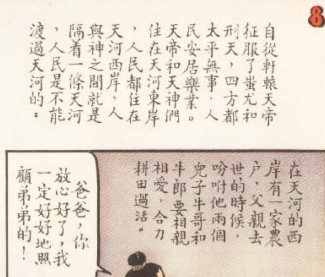 8
自從軒轅天帝
征服了蚩尤和
刑天，四方都
太平無事，人
民安居樂業。
天帝和天神們
住在天河東岸
，人民都住在
天河西岸，人
與神之間就是
隔着一條天河
，人民是不能
渡過天河的。
在天河的西
岸有一家農
户，父親去
世的時候，
吩咐他兩個
兒子牛哥和
牛郎要相親
相愛，合力
耕田過活。
爸爸，你
放心好了，我
一定好好地照
顧弟弟的！